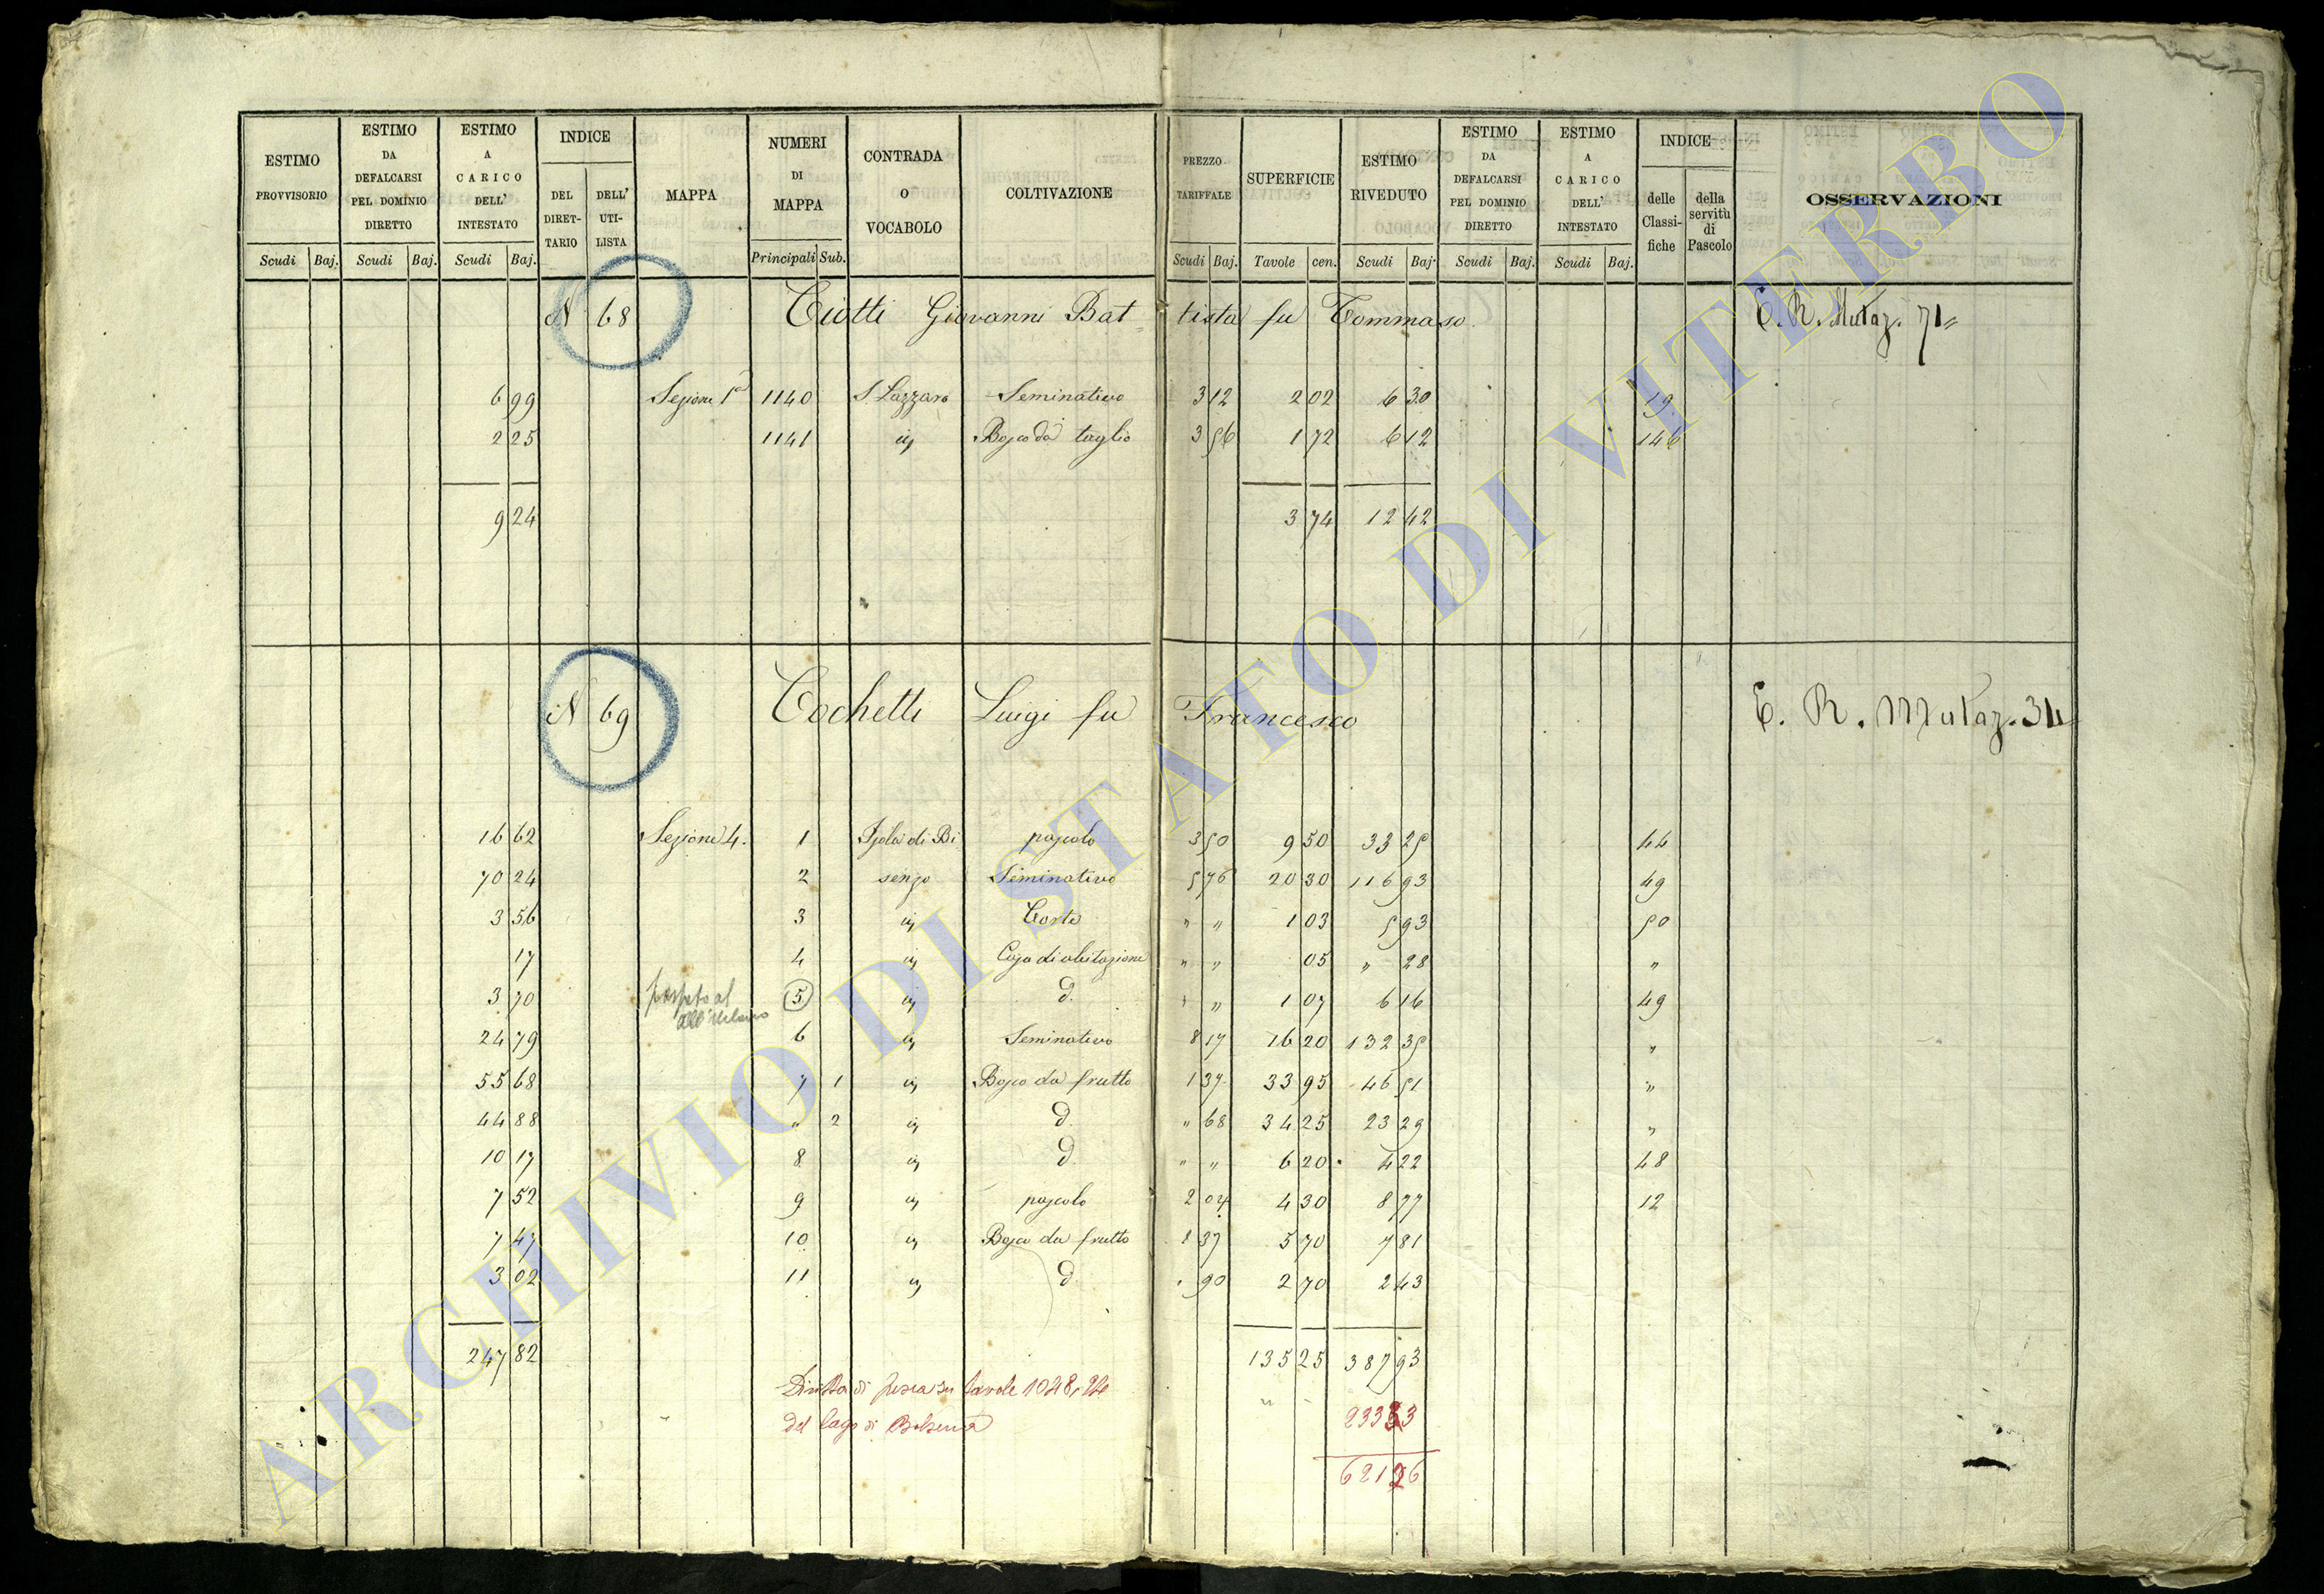 ESTIMO PROVVISORIO | ESTIMO DA DEFALCARSI PEL DOMINIO DIRETTO | ESTIMO A CARICO DELL' INTESTATO | INDICE | DEL DIRET-TARIO | DELL' UTI-LISTA | MAPPA | NUMERI DI MAPPA | CONTRADA O VOCABOLO | COLTIVAZIONE | PREZZO TARIFFALE | SUPERFICIE | ESTIMO RIVEDUTO | ESTIMO DA DEFALCARSI PEL DOMINIO DIRETTO | ESTIMO A CARICO DELL' INTESTATO | INDICE | delle Classi-fiche | della servitù di Pascolo | OSSERVAZIONI
Scudi Baj. Scudi Baj. Scudi Baj. Principali Sub. Scudi Baj. Tavole cen. Scudi Baj. Scudi Baj. Scudi Baj.
N 68 Ciotti Giovanni Bat= tista fu Tommaso. E. R. Mutaz. 71
6 99 Sezione 1ª 1140 S. Lazzaro Seminativo 3 12 2 02 6 30 19
2 25 1141 Bosco da taglio 3 56 1 72 6 12 146
9 24 3 74 12 42
N 69 Cochetti Luigi fu Francesco E. R. Mutaz. 34
16 62 Sezione 4. 1 Isola di Bi pascolo 3 50 9 50 33 25 44
70 24 2 senzo Seminativo 5 76 20 30 116 93 49
3 56 3 Corte " " 1 03 5 93 50
17 4 Casa di abitazione " " 05 " 28 "
3 70 5 d. " " 1 07 6 16 49
24 79 6 Seminativo 8 17 16 20 132 35 "
55 68 7 1 Bosco da frutto 1 37 33 95 46 51 "
44 88 " 2 d. " 68 34 25 23 29 "
10 17 8 d. " " 6 20 4 22 48
7 52 9 pascolo 2 04 4 30 8 77 12
7 47 10 Bosco da frutto 1 37 5 70 7 81
3 02 11 d. " 90 2 70 2 43
247 82 135 25 387 93
Diritto di pesca su tavole 1048,24
del lago di Bolsena 233 33
621 26
ARCHIVIO DI STATO DI VITERBO